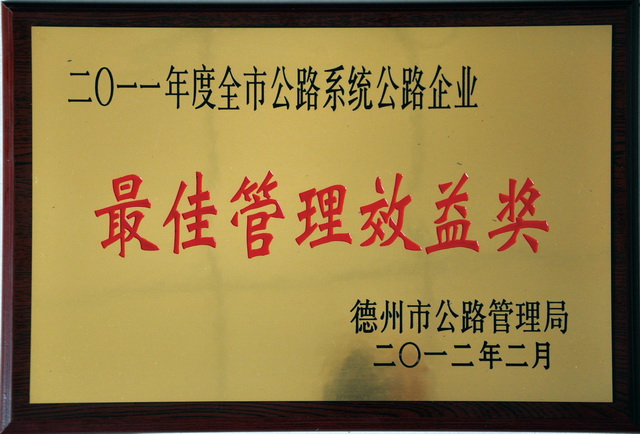 二〇一一年度全市公路系统公路企业
最佳管理效益奖
德州市公路管理局
二〇一二年二月